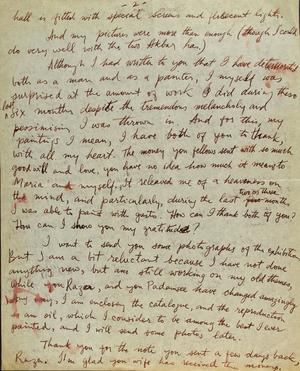 - 2 -
hall is fitted with special screens and flourescent lights.
And my pictures were more than enough (though I could
do very well with the two Akbar has.)
Although I had written to you that I have deteriorated
both as a man and as a painter, I myself was
surprised at the amount of work I did during these
last
six months despite the tremendous melancholy and
pessimism I was thrown in. And for this, my
paintings I mean, I have both of you to thank,
with all my heart. The money you fellows sent with so much
good will and love, you have no idea how much it means to
Maria and myself. It relieved me of a heaveness on
the mind, and particularly, during the last two or three months,
I was able to paint with gusto. How can I thank both of you?
How can I show you my gratitude?
I want to send you some photographs of the exhibition
But I am a bit reluctant because I have not done
anything new, but am still working on my old themes,
while you Raza, and you Padamsee have changed amazingly
any way, I am enclosing the catalogue, and the reproduction
an oil, which I consider to be among the best I ever
painted, and I will send some photos later.
Thank you for the note you sent a few days back
Raza. I'm glad you wife has received the money.